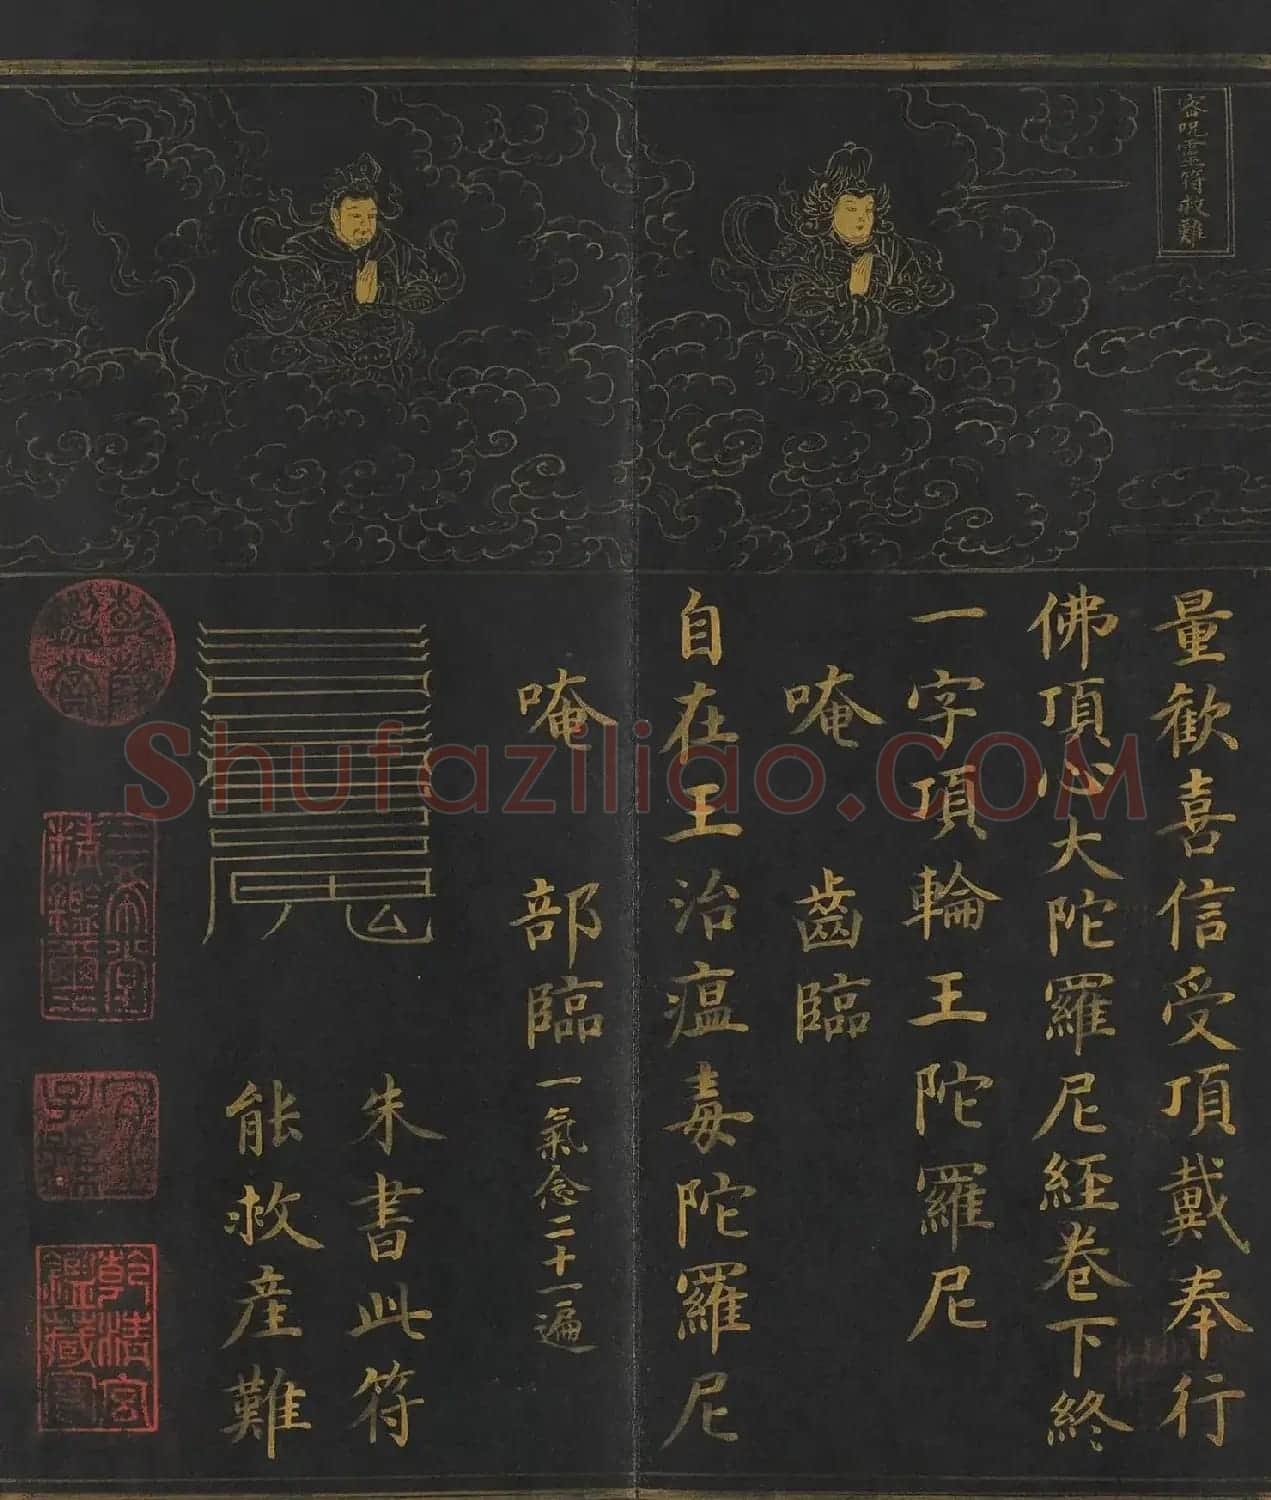 密呪靈符救難
量歡喜信受頂戴奉行
佛頂心大陀羅尼經卷下終
一字頂輪王陀羅尼
唵 齒臨
自在王治瘟毒陀羅尼
唵 部臨 一氣念二十一遍
朱書此符
能救產難
乾隆
鑑賞
三希堂
精鑑璽
宜
子孫
乾清宮
鑑藏寶
Shufaziliao.COM